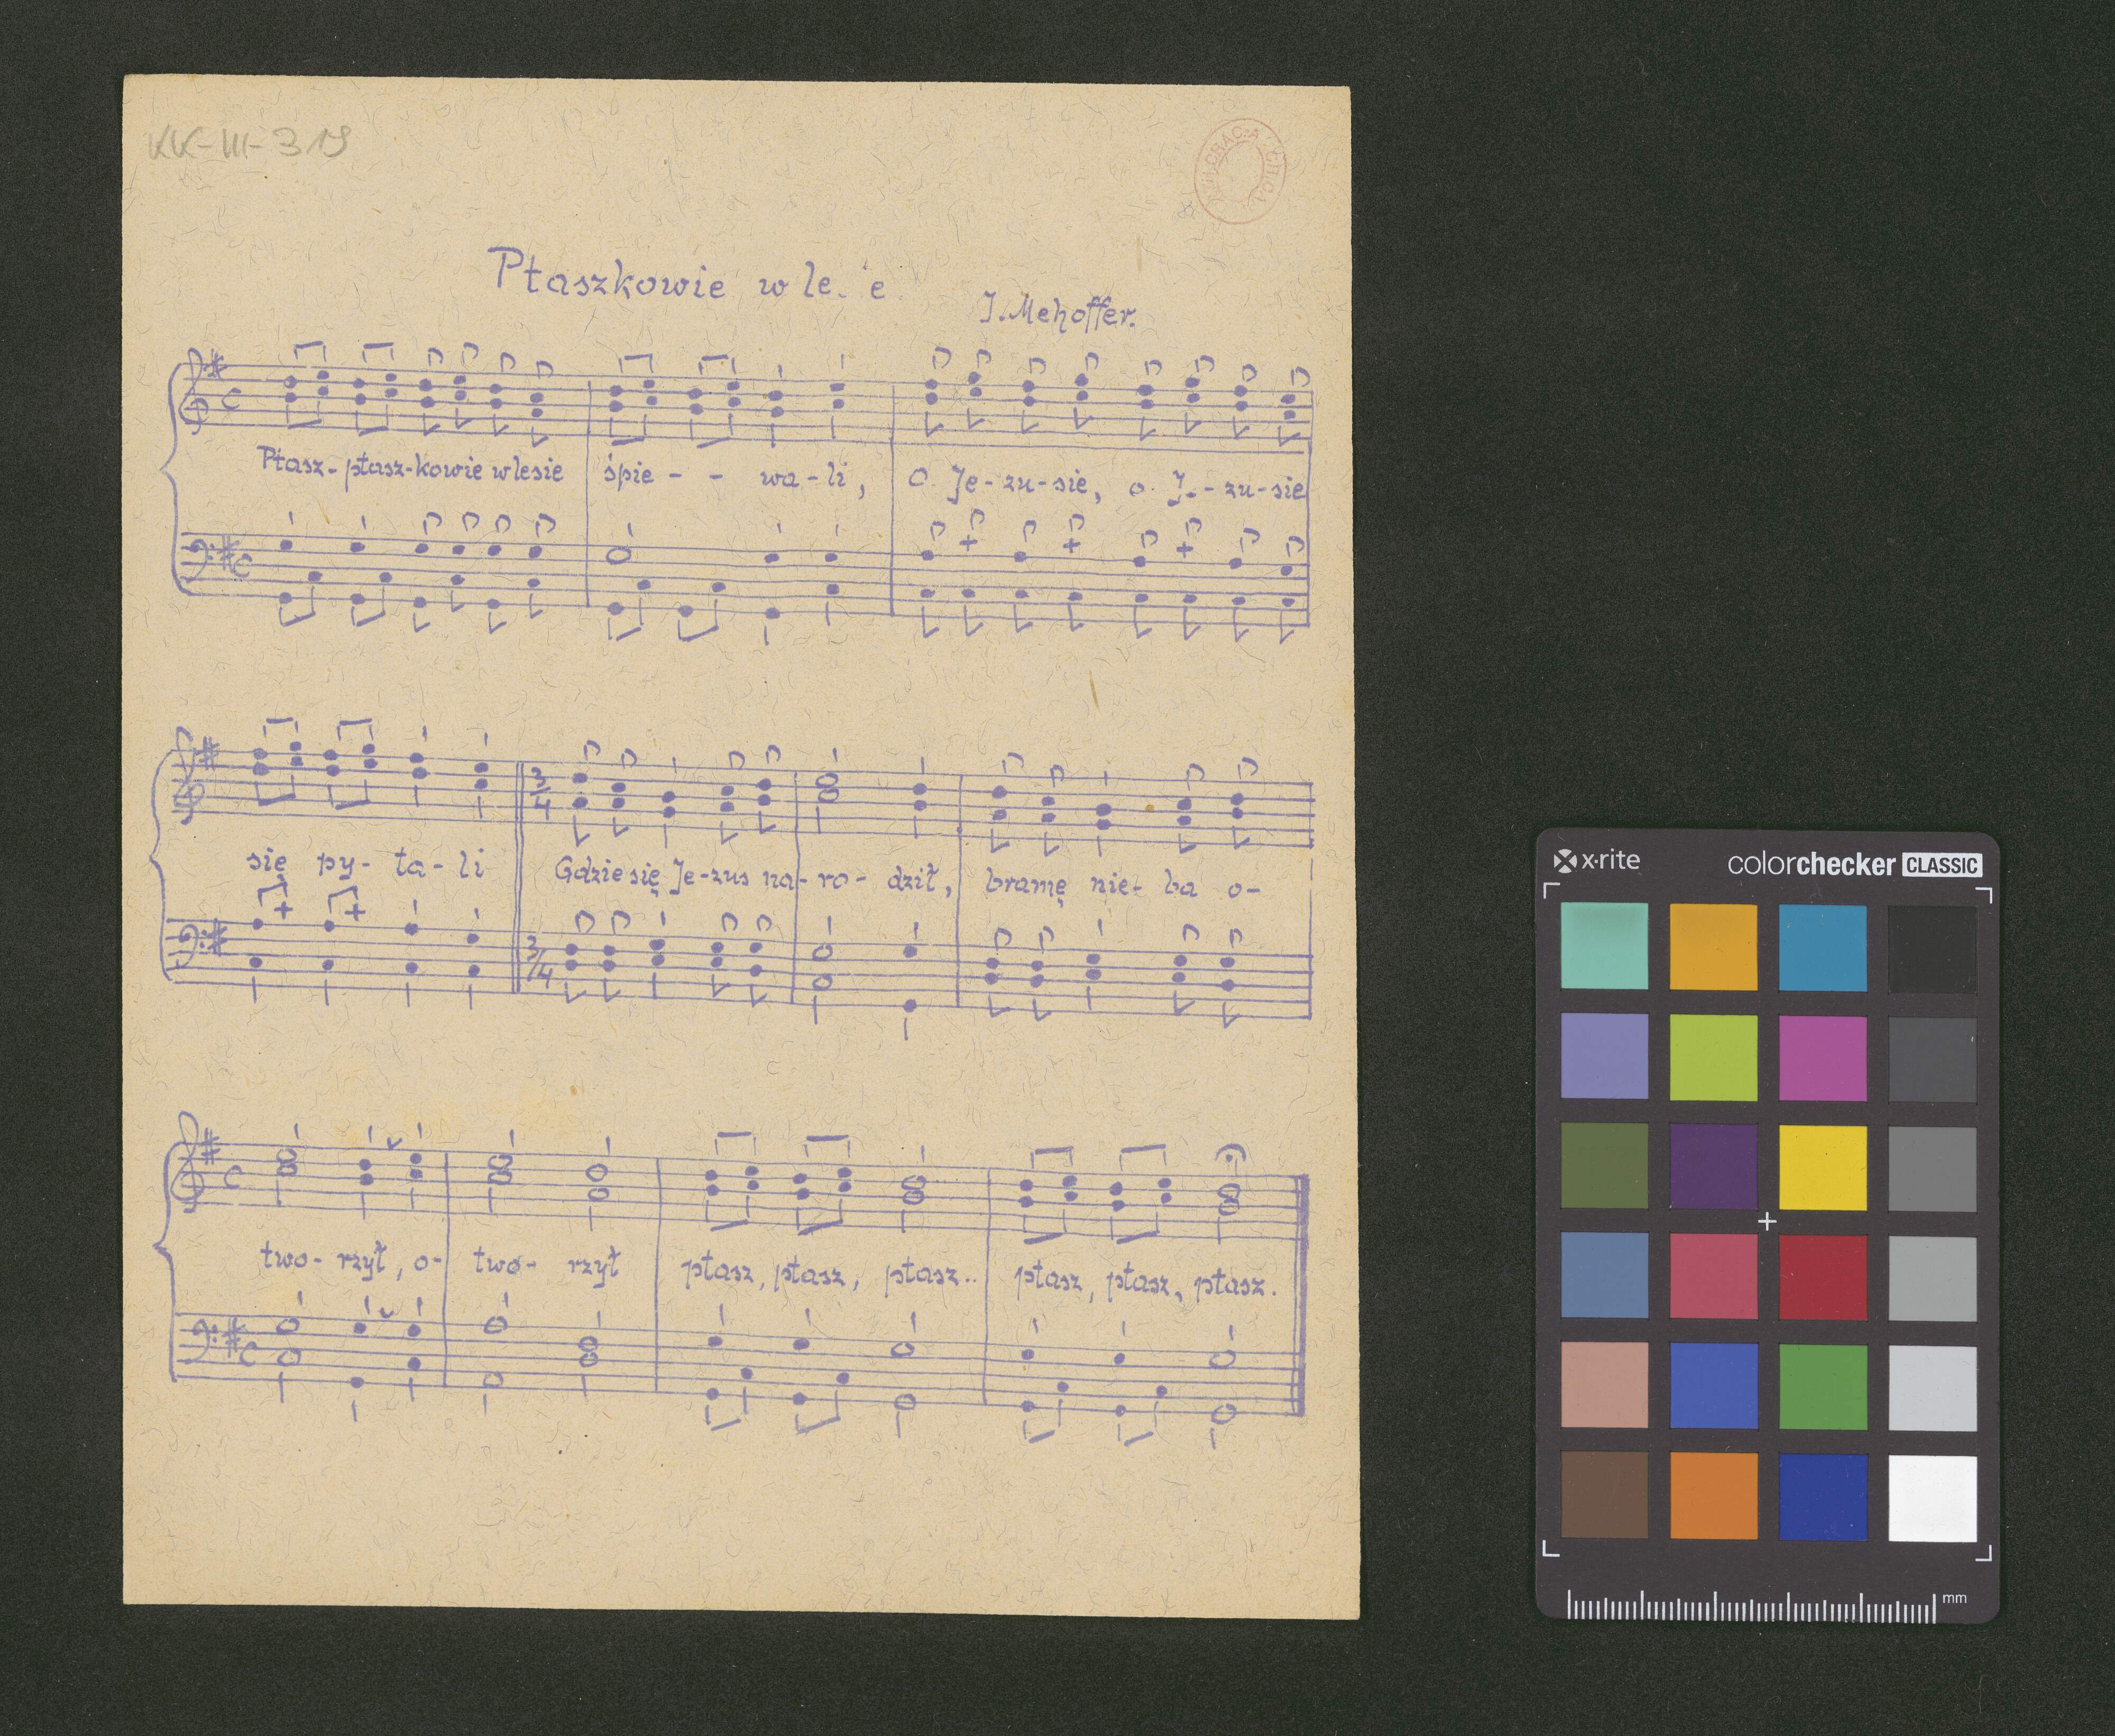 KK-III-319
Ptaszkowie w le. e
J. Mehoffer.
C
Ptasz-ptasz-kowie w lesie śpie - - wa-li, O Je-zu-sie, o J.-zu-sie
C
się py-ta-li 3/4 Gdzie się Je-zus na-ro-dził, bramę nie-ba o-
3/4
C
two-rzył, o-two-rzył ptasz, ptasz, ptasz.. ptasz, ptasz, ptasz.
C
x·rite colorchecker CLASSIC
mm